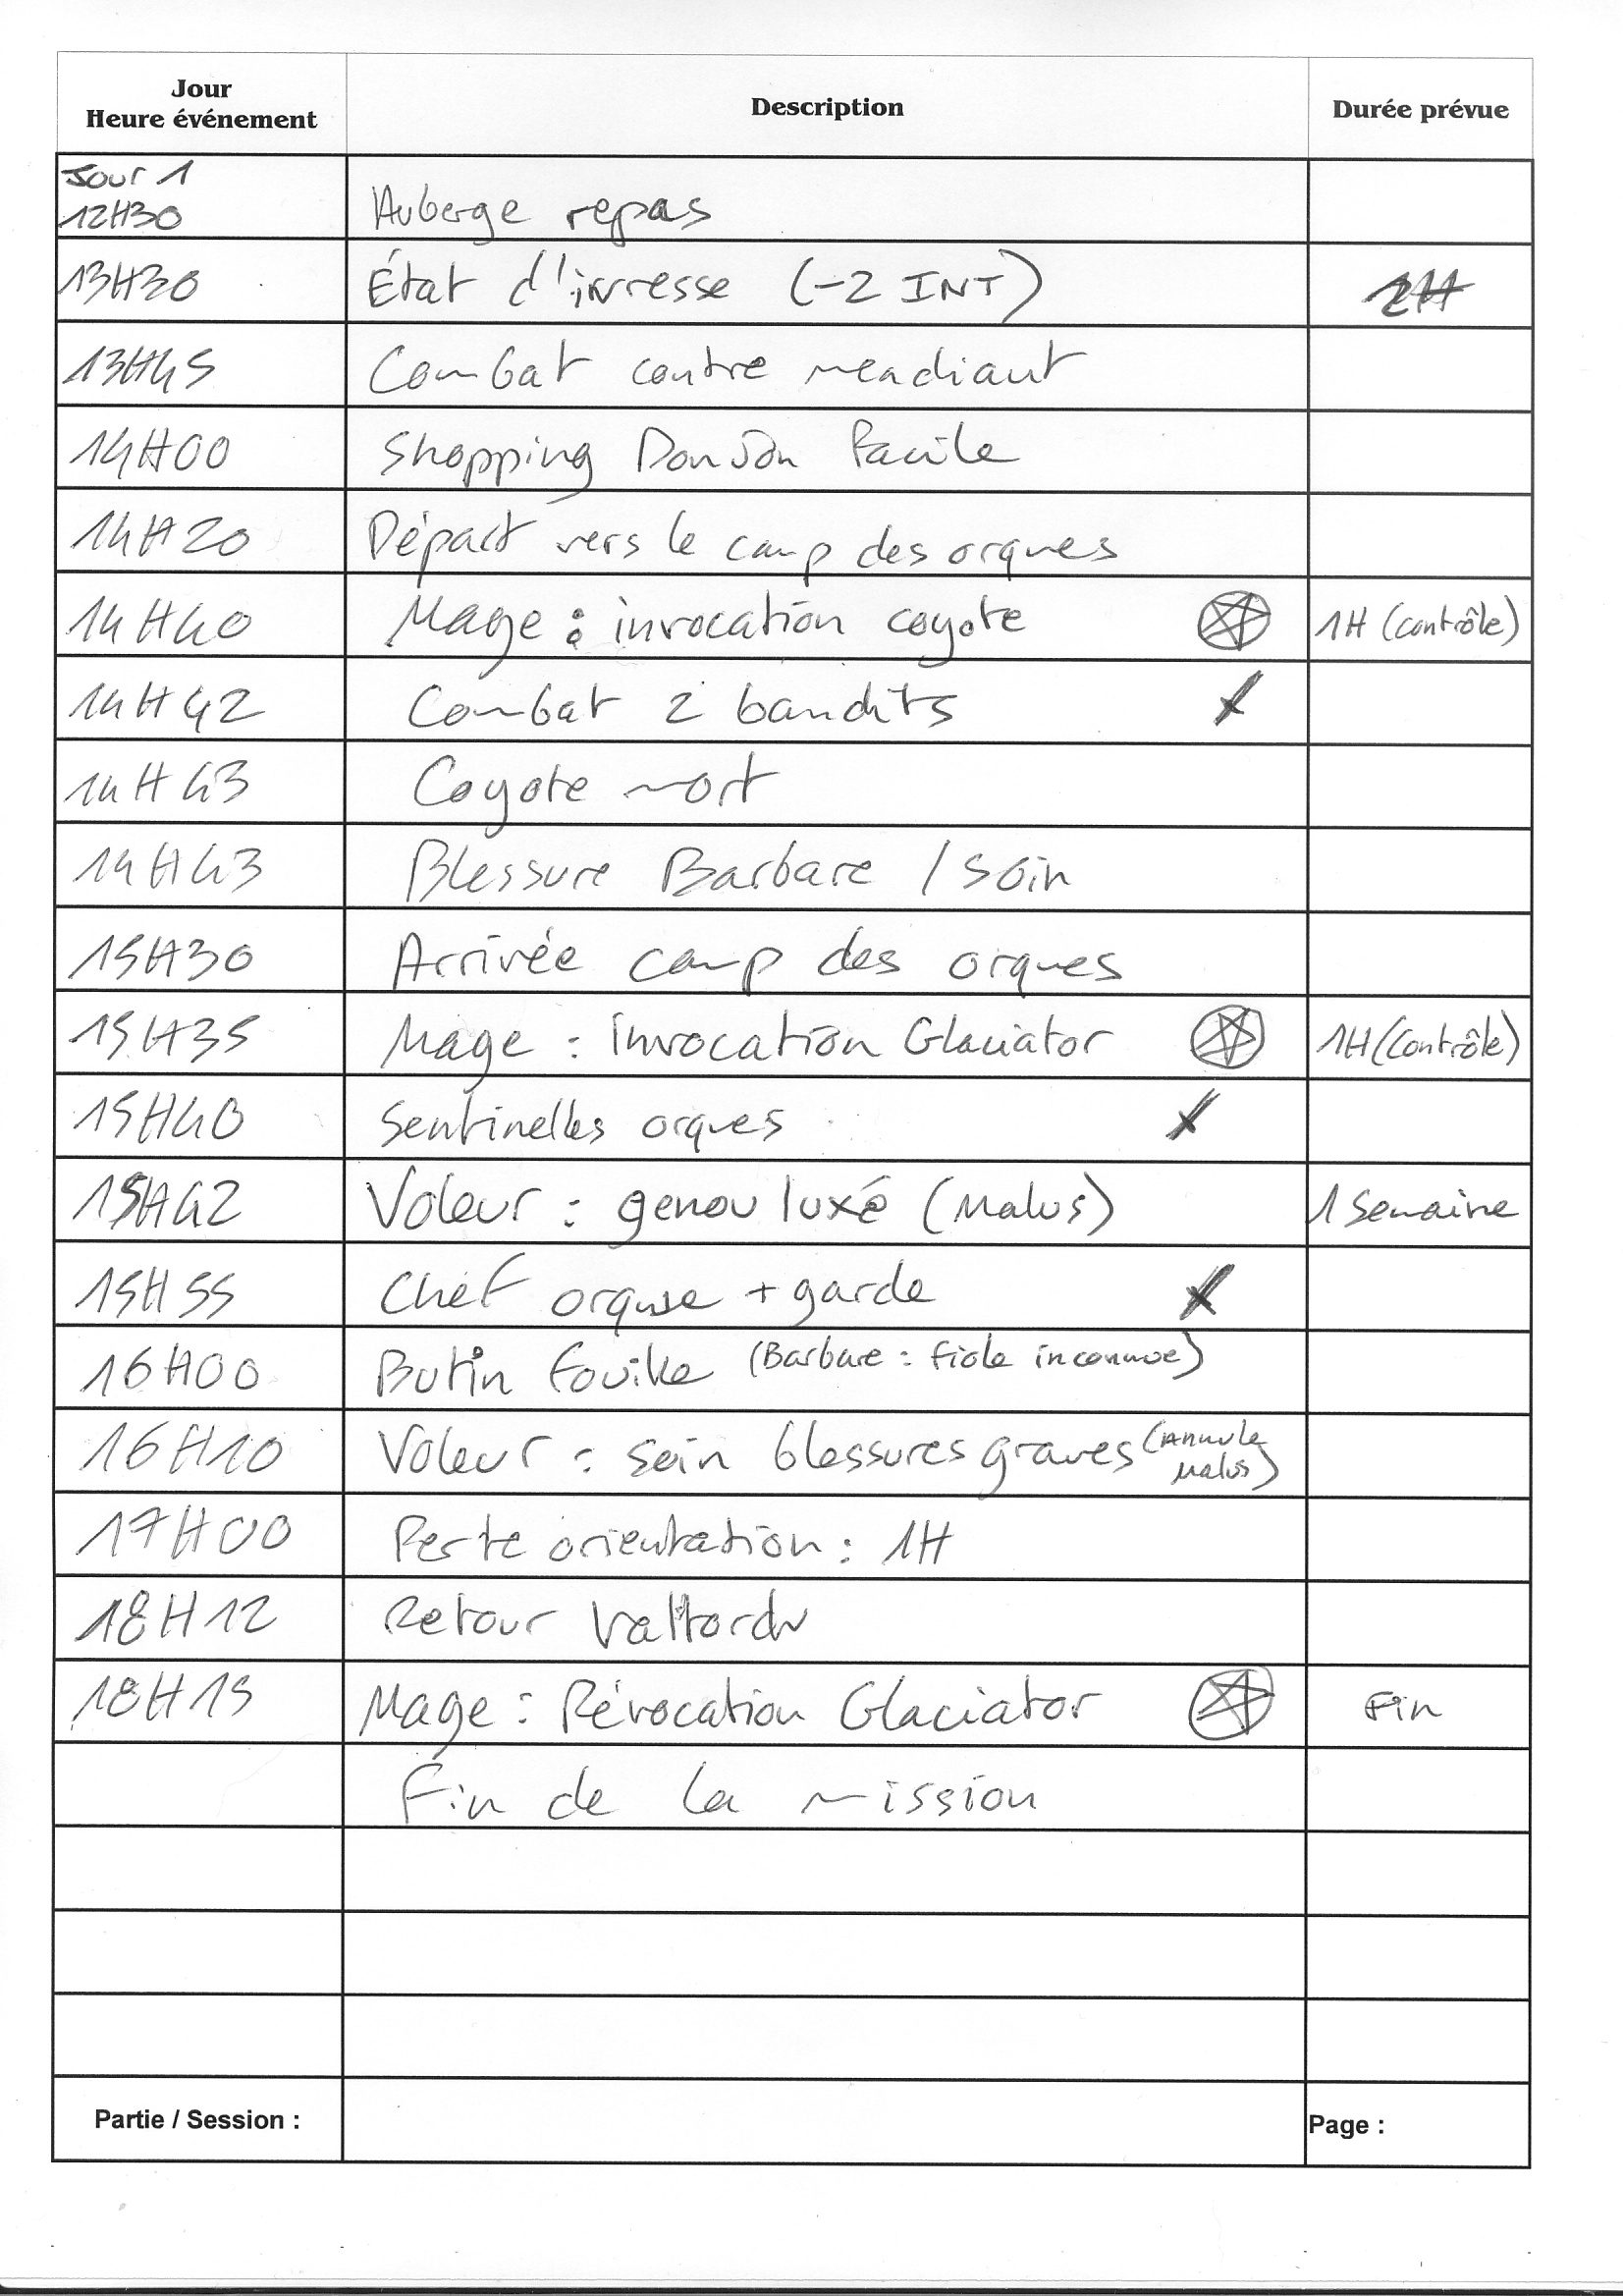 Jour
Heure événement
Description
Durée prévue
Jour 1
12H30
Auberge repas
13H30 État d'ivresse (-2 INT) 2H
13H45 Combat contre mendiant
14H00 Shopping DonJon Facile
14H20 Départ vers le camp des orques
14H40 Mage : invocation coyote 1H (contrôle)
14H42 Combat 2 bandits
14H43 Coyote mort
14H43 Blessure Barbare / Soin
15H30 Arrivée camp des orques
15H35 Mage : Invocation Glaciator 1H (Contrôle)
15H40 Sentinelles orques
15H42 Voleur : genou luxé (Malus) 1 Semaine
15H55 Chef orque + garde
16H00 Butin fouille (Barbare : fiole inconnue)
16H10 Voleur : soin blessures graves (Annule
Malus)
17H00 Perte orientation : 1H
18H12 Retour Valtordu
18H15 Mage : Révocation Glaciator Fin
Fin de la mission
Partie / Session :
Page :